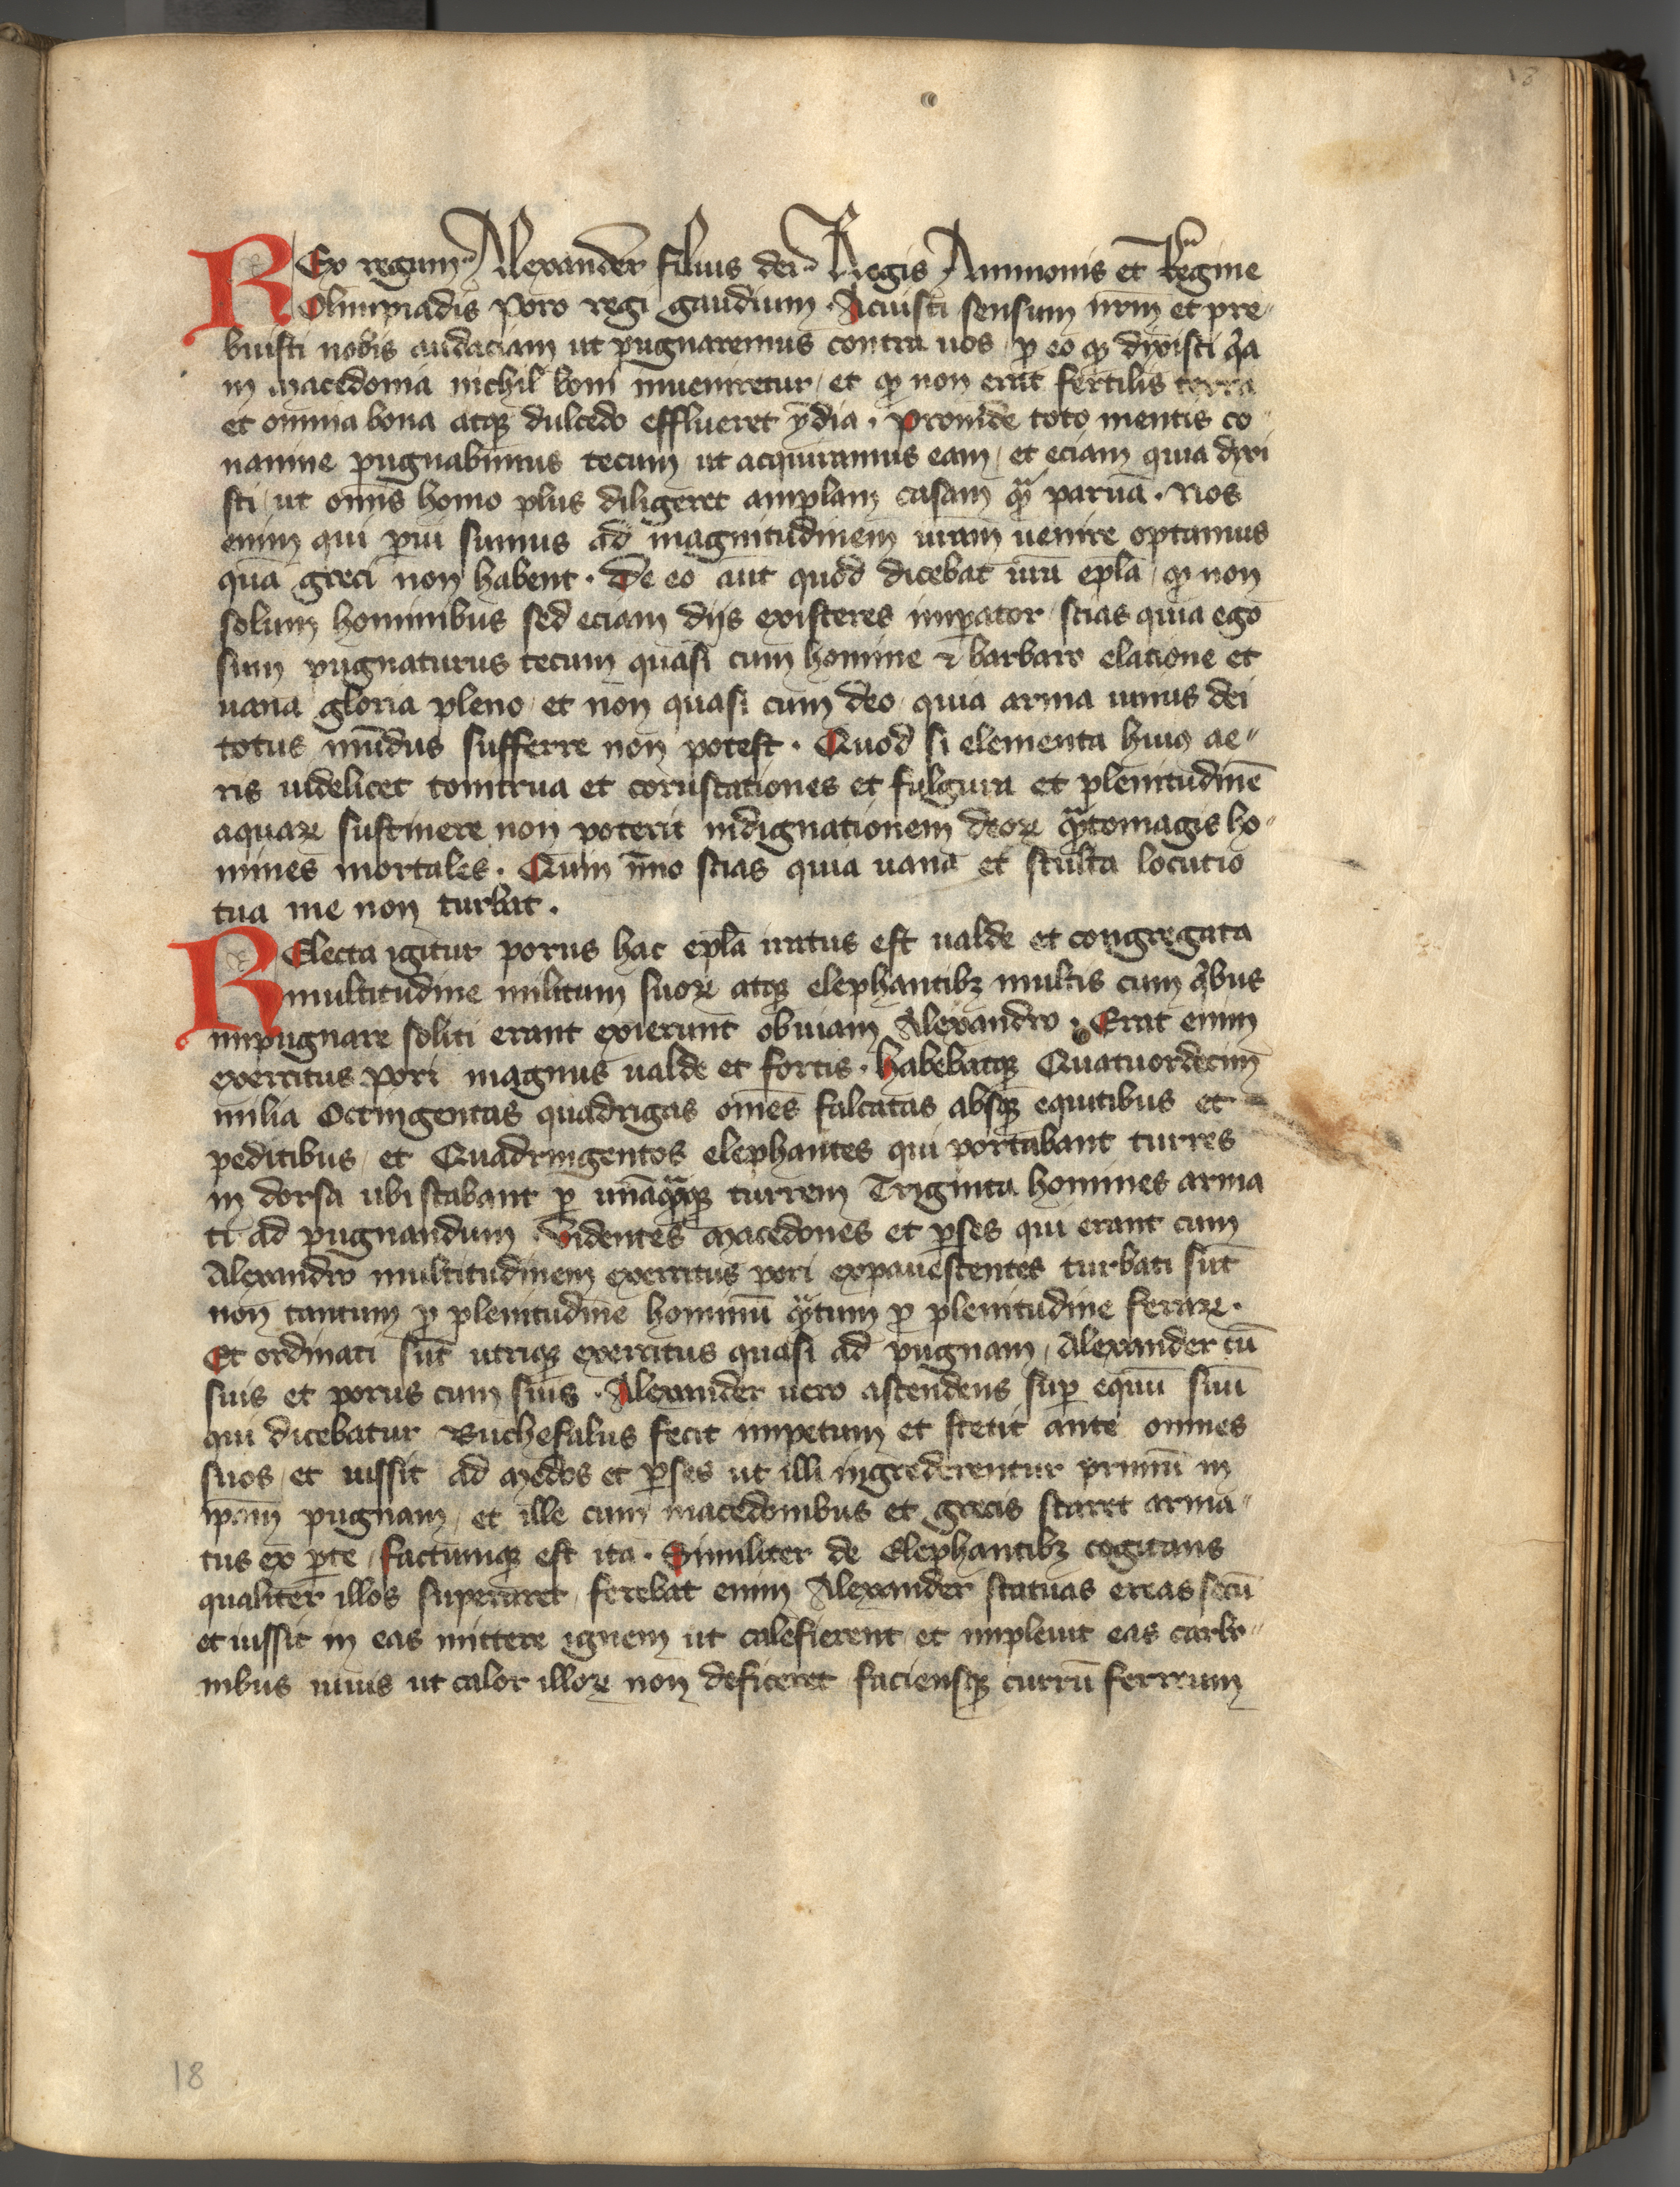 18
REx regum Alexander filius dei Regis Ammonis et Regine
Olimpiadis Poro regi gaudium . Acuisti sensum nr̄m et pre〃
buisti nobis audaciam ut pugnaremus contra uos p̱ eo qꝫ dyxisti qͣa
in macedonia nichil boni inueniretur / et qꝫ non erat fertilis terra
et omnia bona atqꝫ dulcedo efflueret ÿdia . Proinde toto mentis co〃
namine pugnabimus tecum / ut acquiramus eam / et eciam quia dyxi
sti / ut omīs homo plus diligeret amplam casam qͣ̄ paruā . Nos
enim qui p̱ui sumus ad magnitudinem ur̄am uenire optamus
quā greci non habent . De eo aūt quod dicebat ur̄a ep̄la / qꝫ non
solum hominibus sed eciam dijs existeres imp̱ator / scias quia ego
sum pugnaturus tecum quasi cum homine ⁊ barbaro elatione et
uana gloria pleno / et non quasi cum deo / quia arma unius dei
totus mūdus sufferre non potest . Quod si elementa huiꝰ ae〃
ris uidelicet tonitrua et coruscationes et fulgura et plenitudinē
aquaꝝ sustinere non poterit indignationem deoꝝ qͣ̄tomagis ho〃
mines mortales . Quin ȳmo scias quia uana et stulta locutio
tua me non turbat .
RElecta igitur porus hac ep̄la iratus est ualde et congregata
multitudine militum suoꝝ atqꝫ elephantibꝫ multis cum qͥbus
impugnare soliti erant exierunt obuiam Alexandro . Erat enim
exercitus pori magnus ualde et fortis . habebatqꝫ Quatuordecim
milia Octingentas quadrigas om̄es falcatas absqꝫ equitibus et
peditibus / et Quadringentos elephantes qui portabant turres
in dorsa ubi stabant p̱ unāqͣ̄qꝫ turrem Triginta homines arma
ti ad pugnandum . Uidentes macedones et p̱ses qui erant cum
Alexandro multitudinem exercitus pori expauescentes turbati sūt
non tantum p̱ plenitudine hominū qͣ̄tum p̱ plenitudine feraꝝ .
Et ordinati sūt utriqꝫ exercitus quasi ad pugnam / Alexander cū
suis et porus cum suis . Alexander uero ascendens sup̱ equū suū
qui dicebatur Buchefalus fecit impetum et stetit ante omnes
suos / et iussit ad medos et p̱ses ut illi ingrederentur primū in
ip̄am pugnam / et ille cum macedonibus et grecis staret arma〃
tus ex p̱te / factumqꝫ est ita . Similiter de Elephantibꝫ cogitans
qualiter illos superaret / ferebat enim Alexander statuas ereas secū
et iussit in eas mittere ignem ut calefierent / et impleuit eas carbo〃
nibus uiuis ut calor illoꝝ non deficeret / faciensqꝫ currū ferreum
18